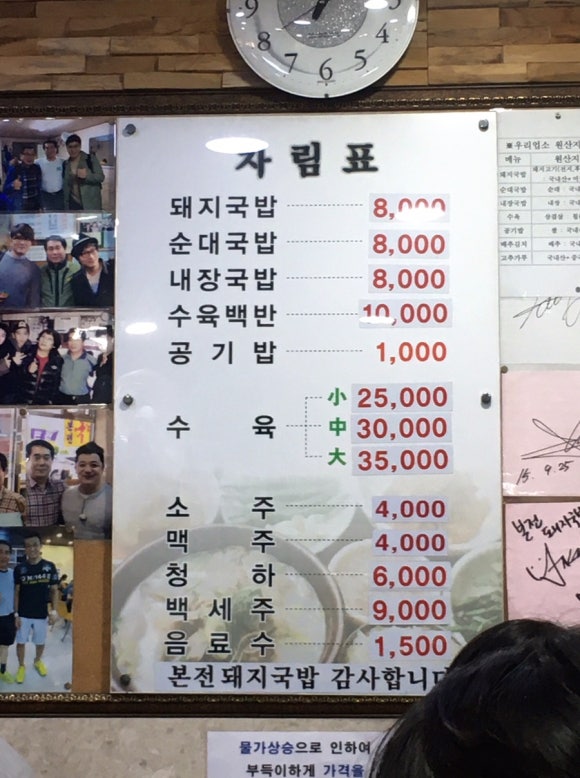 차림표
돼지국밥 8,000
순대국밥 8,000
내장국밥 8,000
수육백반 10,000
공기밥 1,000
수육 小 25,000
中 30,000
大 35,000
소주 4,000
맥주 4,000
청하 6,000
백세주 9,000
음료수 1,500
본전돼지국밥 감사합니다
※우리업소 원산지
메뉴 원산지
돼지국밥
: 국내산+
순대국밥 순대 : 국내
내장국밥 내장 : 국내
수육 삼겹살
공기밥 쌀 : 국내
배추김치 배추 : 국내
고추가루 국내산+중국
15. 9. 25
본전 돼지국밥
물가상승으로 인하여
부득이하게 가격을
7 6 5